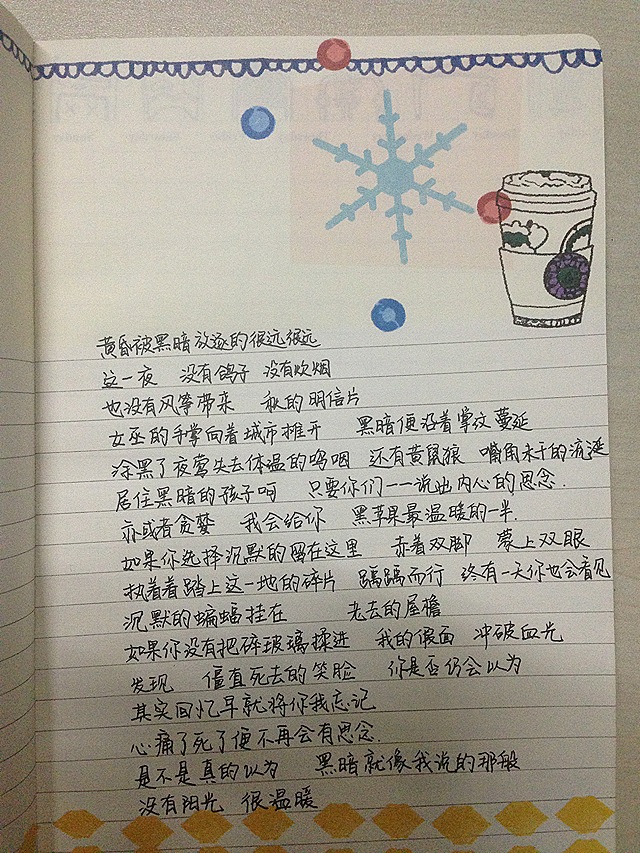 黄昏被黑暗放逐的很远很远
这一夜 没有鸽子 没有炊烟
也没有风筝带来 秋的明信片
女巫的手掌向着城市推开 黑暗便沿着掌纹蔓延
涂黑了夜莺失去体温的呜咽 还有黄鼠狼 嘴角未干的流涎
居住黑暗的孩子呵 只要你们一一说出内心的思念.
亦或者贪婪 我会给你 黑苹果最温暖的一半.
如果你选择沉默的留在这里 赤着双脚 蒙上双眼
执着着踏上这一地的碎片 蹒蹒而行 终有一天你也会看见
沉默的蝙蝠挂在 老去的屋檐
如果你没有把碎玻璃揉进 我的假面 冲破血光
发现 僵直死去的笑脸 你是否仍会以为
其实回忆早就将你我忘记
心痛了死了便不再会有思念.
是不是真的以为 黑暗就像我说的那般
没有阳光 很温暖